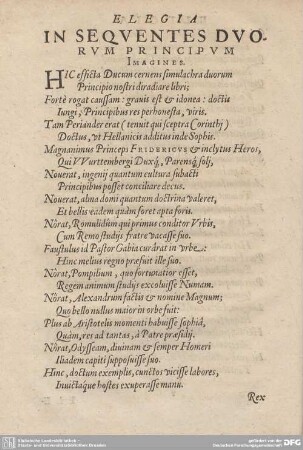 ELEGIA
IN SEQVENTES DVO-
RVM PRINCIPVM
IMAGINES.
HIC efficta Ducum cernens simulachra duorum
Principio nostri diradiare libri;
Fortè rogat caussam: grauis est & idonea: doctis
Iungi, Principibus res perhonesta, viris.
Tam Periander erat (tenuit qui sceptra Corinthi)
Doctus, vt Hellanicis additus inde Sophis.
Magnanimus Princeps FRIDERICVS & inclytus Heros,
Qui VVurttembergi Duxq́, Parensq́ soli,
Nouerat, ingenij quantum cultura subacti
Principibus posset conciliare decus.
Nouerat, alma domi quantum doctrina valeret,
Et bellis eadem quàm foret apta foris.
Nôrat, Romulidûm qui primus conditor Vrbis,
Cum Remo studijs fratre vacasse suo.
Faustulus id Pastor Gabia curârat in vrbe:
Hinc melius regno præfuit ille suo.
Nôrat, Pompilium, quo fortunatior esset,
Regem animum studijs excoluisse Numam.
Nôrat, Alexandrum factis & nomine Magnum;
Quo bello nullus maior in orbe fuit:
Plus ab Aristotelis momenti habuisse sophiâ,
Quàm, res ad tantas, à Patre præsidij.
Nôrat, Odysseam, diuinam & semper Homeri
Iliadem capiti supposuisse suo.
Hinc, doctum exemplis, cunctos vicisse labores,
Inuictáque hostes exuperasse manu.
Rex